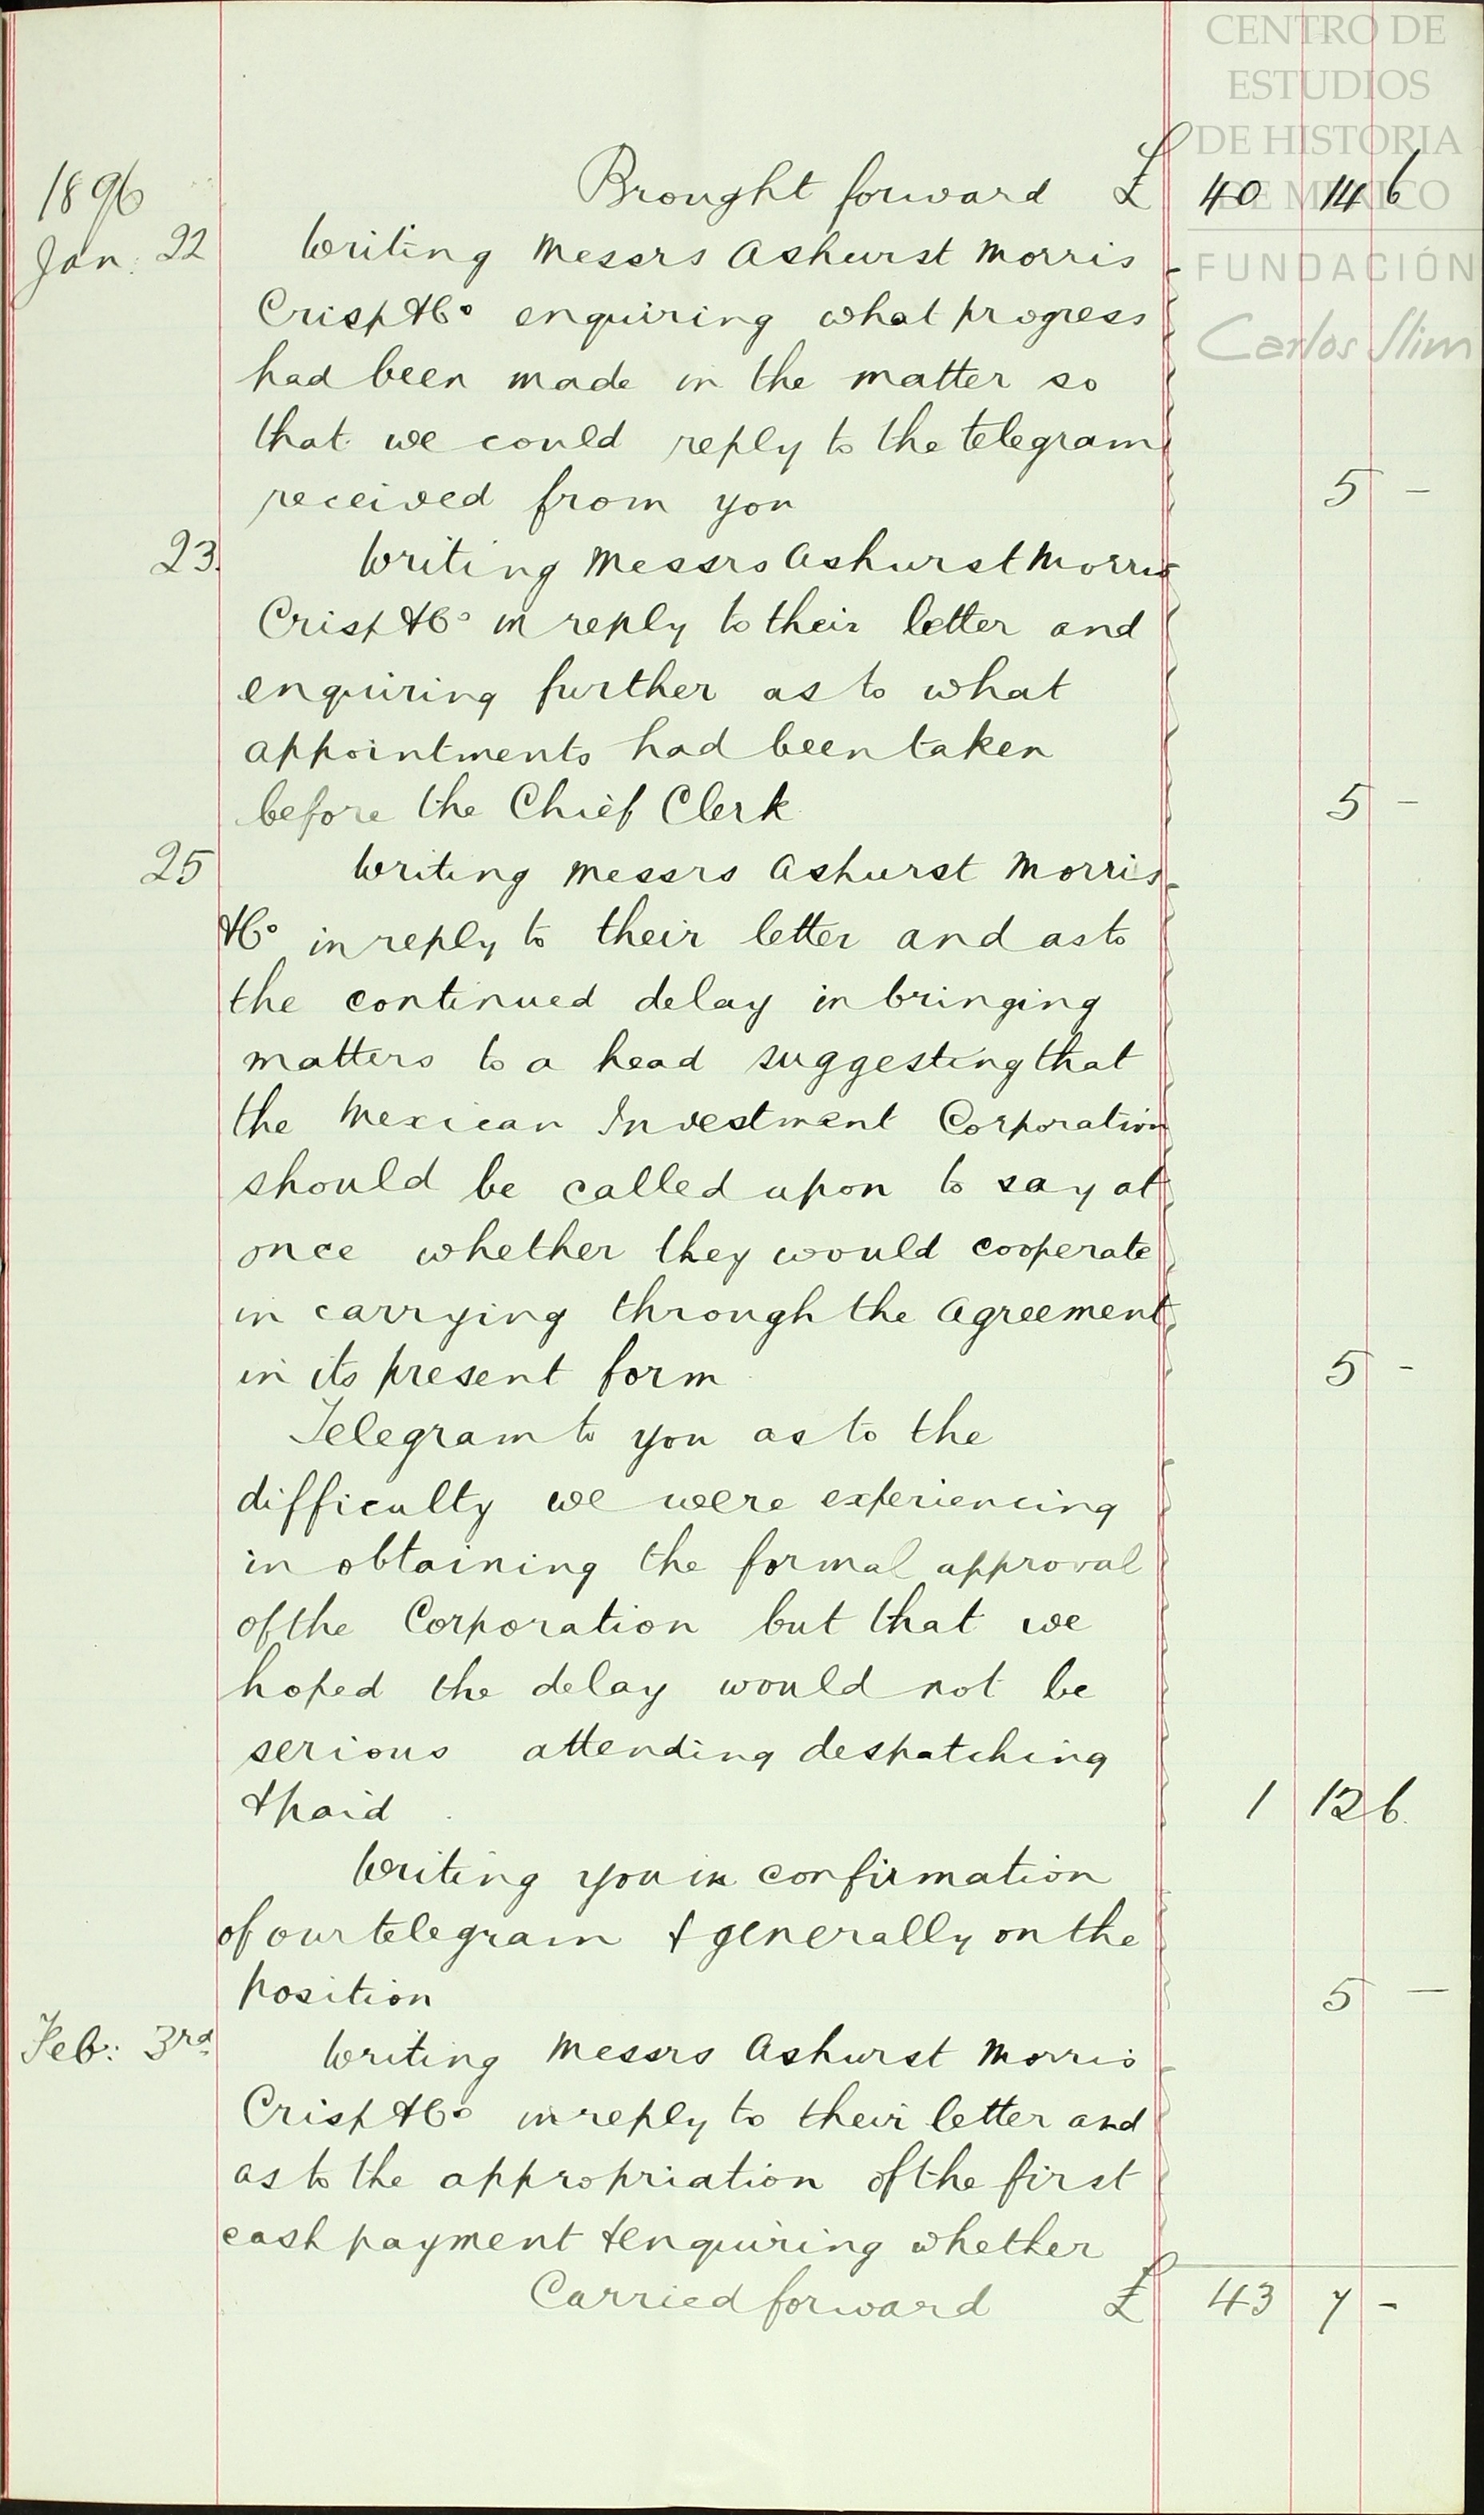 CENTRO DE
ESTUDIOS
DE HISTORIA
DE MEXICO
FUNDACIÓN
Carlos Slim
1896 Brought forward £ 40 14 6
Jan: 22 Writing Messrs Ashurst Morris
Crisp & Co enquiring what progress
had been made in the matter so
that we could reply to the telegram
received from you 5 -
23. Writing Messrs Ashurst Morris
Crisp & Co in reply to their letter and
enquiring further as to what
appointments had been taken
before the Chief Clerk 5 -
25 Writing Messrs Ashurst Morris
& Co in reply to their letter and as to
the continued delay in bringing
matters to a head suggesting that
the Mexican Investment Corporation
should be called upon to say at
once whether they would cooperate
in carrying through the Agreement
in its present form 5 -
Telegram to you as to the
difficulty we were experiencing
in obtaining the formal approval
of the Corporation but that we
hoped the delay would not be
serious attending despatching
& paid 1 12 6.
Writing you in confirmation
of our telegram & generally on the
position 5 -
Feb: 3rd. Writing Messrs Ashurst Morris
Crisp & Co in reply to their letter and
as to the appropriation of the first
cash payment & enquiring whether
Carried forward £ 43 7 -